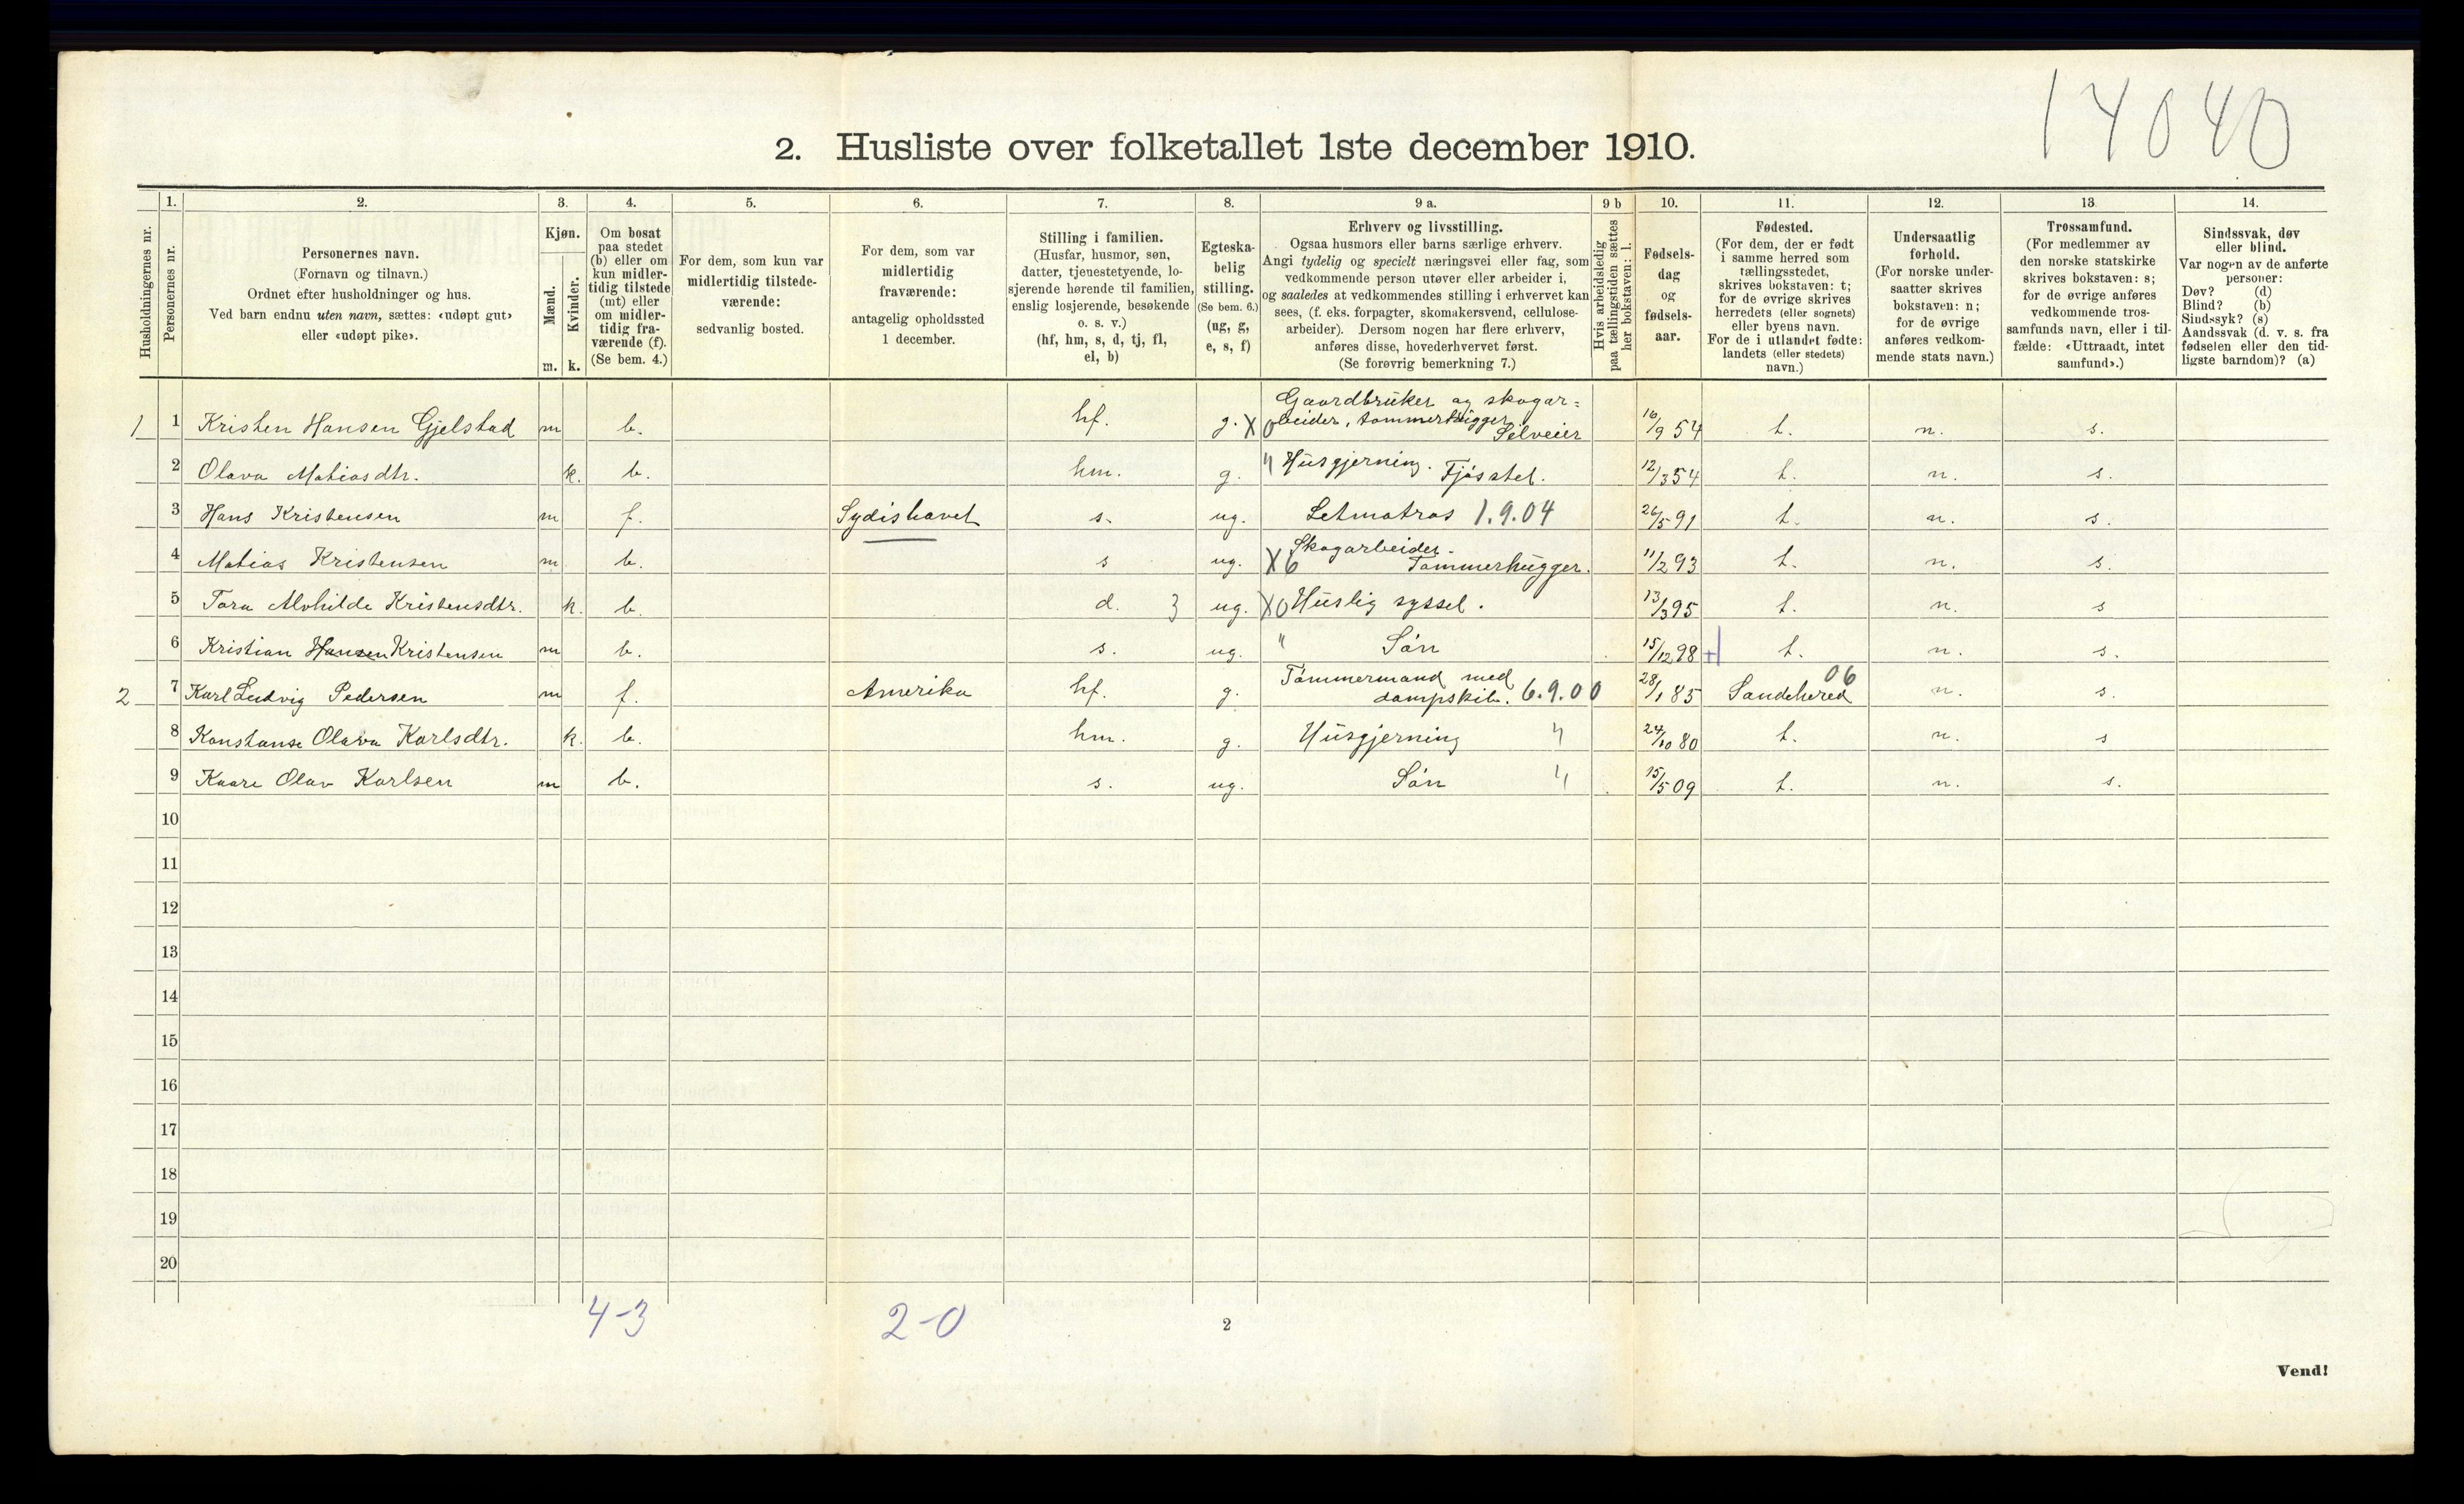 14040
2. Husliste over folketallet 1ste december 1910.
1. 2. 3. 4. 5. 6. 7. 8. 9 a. 9 b 10. 11. 12. 13. 14.
Husholdningernes nr.
Personernes nr.
Personernes navn.
(Fornavn og tilnavn.)
Ordnet efter husholdninger og hus.
Ved barn endnu uten navn, sættes: «udøpt gut»
eller «udøpt pike».
Kjøn.
Mænd.
Kvinder.
m. k.
Om bosat
paa stedet
(b) eller om
kun midler-
tidig tilstede
(mt) eller
om midler-
tidig fra-
værende (f).
(Se bem. 4.)
For dem, som kun var
midlertidig tilstede-
værende:
sedvanlig bosted.
For dem, som var
midlertidig
fraværende:
antagelig opholdssted
1 december.
Stilling i familien.
(Husfar, husmor, søn,
datter, tjenestetyende, lo-
sjerende hørende til familien,
enslig losjerende, besøkende
o. s. v.)
(hf, hm, s, d, tj, fl,
el, b)
Egteska-
belig
stilling.
(Se bem. 6.)
(ug, g,
e, s, f)
Erhverv og livsstilling.
Ogsaa husmors eller barns særlige erhverv.
Angi tydelig og specielt næringsvei eller fag, som
vedkommende person utøver eller arbeider i,
og saaledes at vedkommendes stilling i erhvervet kan
sees, (f. eks. forpagter, skomakersvend, cellulose-
arbeider). Dersom nogen har flere erhverv,
anføres disse, hovederhvervet først.
(Se forøvrig bemerkning 7.)
Hvis arbeidsledig
paa tællingstiden sættes
her bokstaven: l.
Fødsels-
dag
og
fødsels-
aar.
Fødested.
(For dem, der er født
i samme herred som
tællingsstedet,
skrives bokstaven: t;
for de øvrige skrives
herredets (eller sognets)
eller byens navn.
For de i utlandet fødte:
landets (eller stedets)
navn.)
Undersaatlig
forhold.
(For norske under-
saatter skrives
bokstaven: n;
for de øvrige
anføres vedkom-
mende stats navn.)
Trossamfund.
(For medlemmer av
den norske statskirke
skrives bokstaven: s;
for de øvrige anføres
vedkommende tros-
samfunds navn, eller i til-
fælde: «Uttraadt, intet
samfund».)
Sindssvak, døv
eller blind.
Var nogen av de anførte
personer:
Døv? (d)
Blind? (b)
Sindssyk? (s)
Aandssvak (d. v. s. fra
fødselen eller den tid-
ligste barndom)? (a)
1 1 Kristen Hansen Gjelstad m b. hf. g. X0 Gaardbruker og skogar=
beider, tømmerhugger, Selveier 16/9 54 t. n. s.
2 Olava Matiasdtr. k. b. hm. g. " Husgjerning. Fjøsstel. 12/3 54 t. n. s.
3 Hans Kristensen m f. Sydishavet s. ug. Letmatros 1.9.04 26/5 91 t. n. s.
4 Matias Kristensen m b. s ug. X6 Skogarbeider.
Tømmerhugger. 11/2 93 t. n. s.
5 Tora Alvhilde Kristensdtr. k. b. d. 3 ug. X0 Huslig syssel. 13/3 95 t. n. s
6 Kristian Hansen Kristensen m b. s. ug. " Søn 15/12 98 t. n. s.
2 7 Karl Ludvig Pedersen m f. Amerika hf. g. Tømmermand med
dampskib. 6.9.00 28/1 85 Sandehered 06 n. s.
8 Konstanse Olava Karlsdtr. k. b. hm. g. Husgjerning " 24/10 80 t. n. s
9 Kaare Olav Karlsen m b. s. ug. Søn " 15/5 09 t. n. s.
10
11
12
13
14
15
16
17
18
19
20
4-3 2-0
2
Vend!